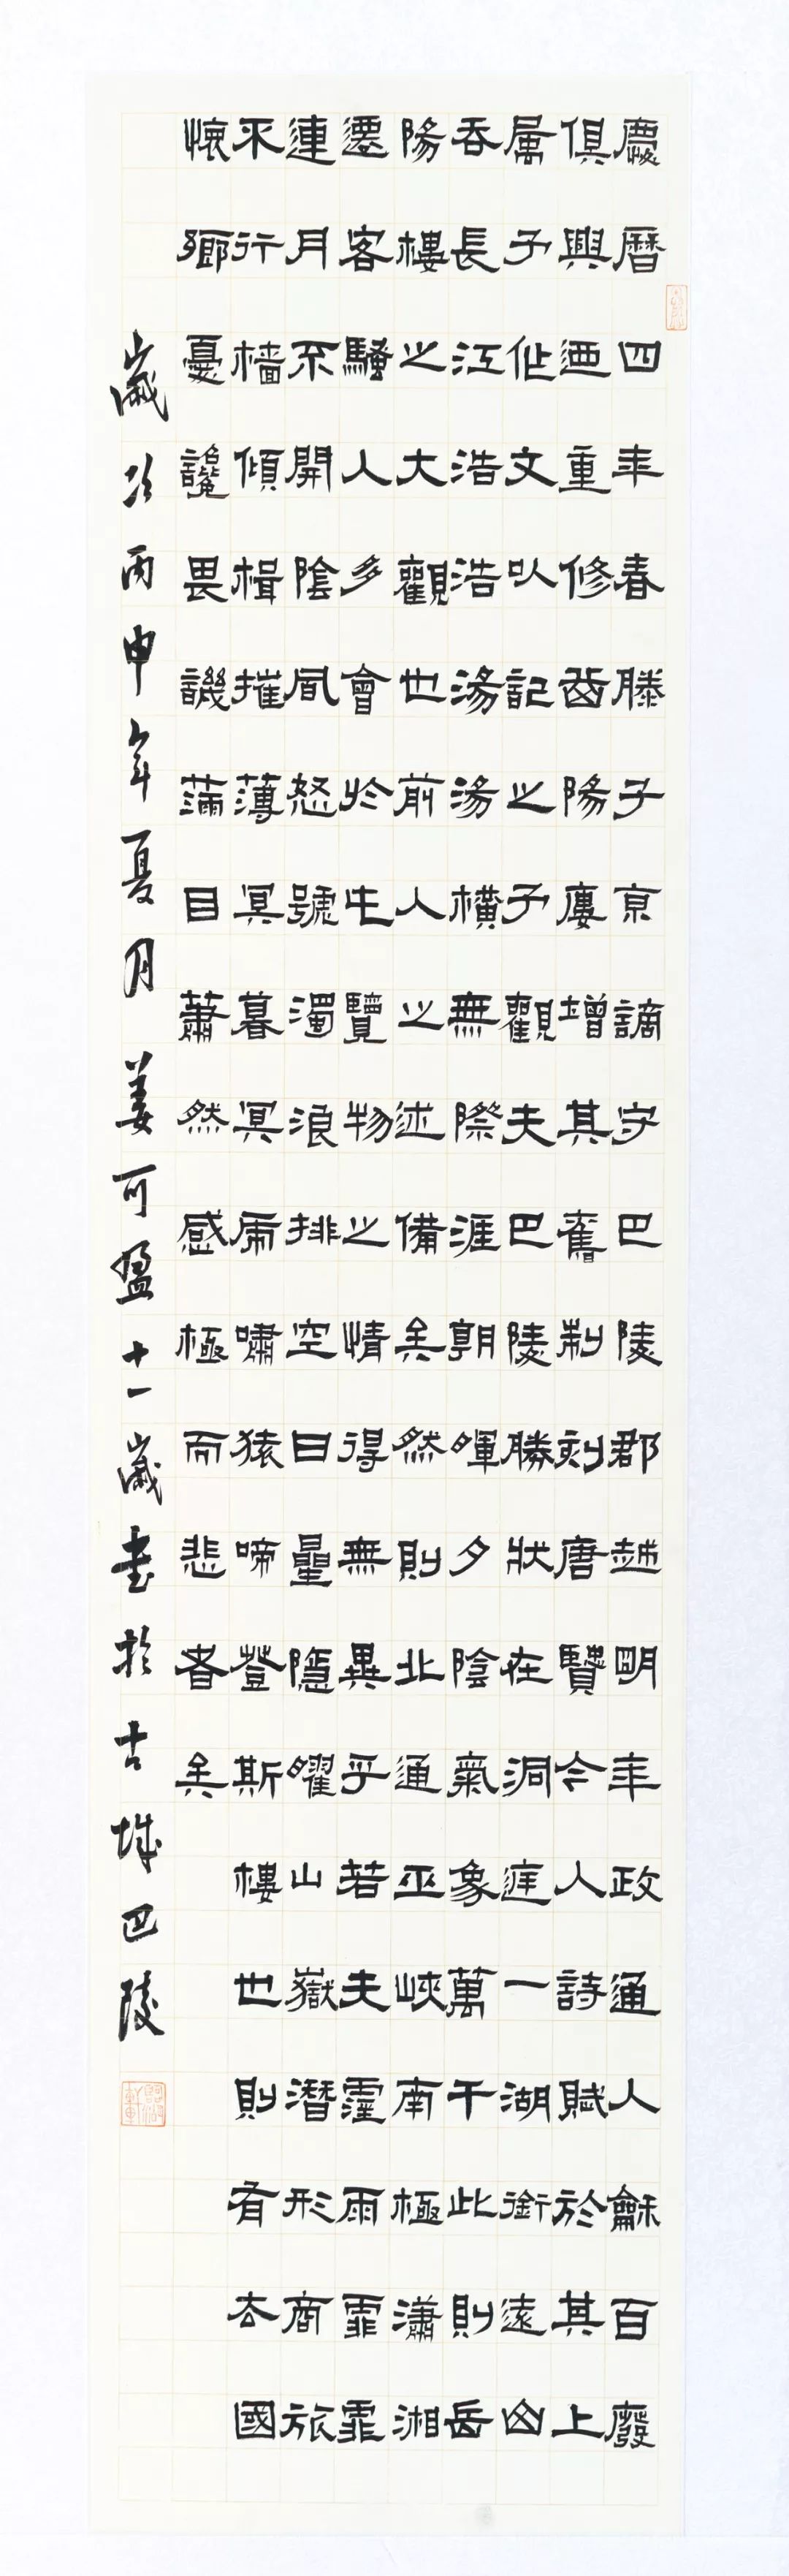 慶曆四年春滕子京謫守巴陵郡越明年政通人龢百廢
俱興迺重修岳陽廔增其舊制刻唐賢今人詩賦於其上
属予作文以記之予觀夫巴陵勝狀在洞庭一湖銜遠山
吞長江浩浩湯湯橫無際涯朝暉夕陰氣象萬千此則岳
陽樓之大觀也前人之述備矣然則北通巫峽南極瀟湘
遷客騷人多會於此覽物之情得無異乎若夫霪雨霏霏
連月不開陰風怒號濁浪排空日星隱曜山嶽潛形商旅
不行檣傾楫摧薄冥暮冥虎嘯猿啼登斯樓也則有去國
懷鄉憂讒畏譏滿目蕭然感極而悲者矣
歲次丙申年夏月姜可盈十一歲書於古城巴陵